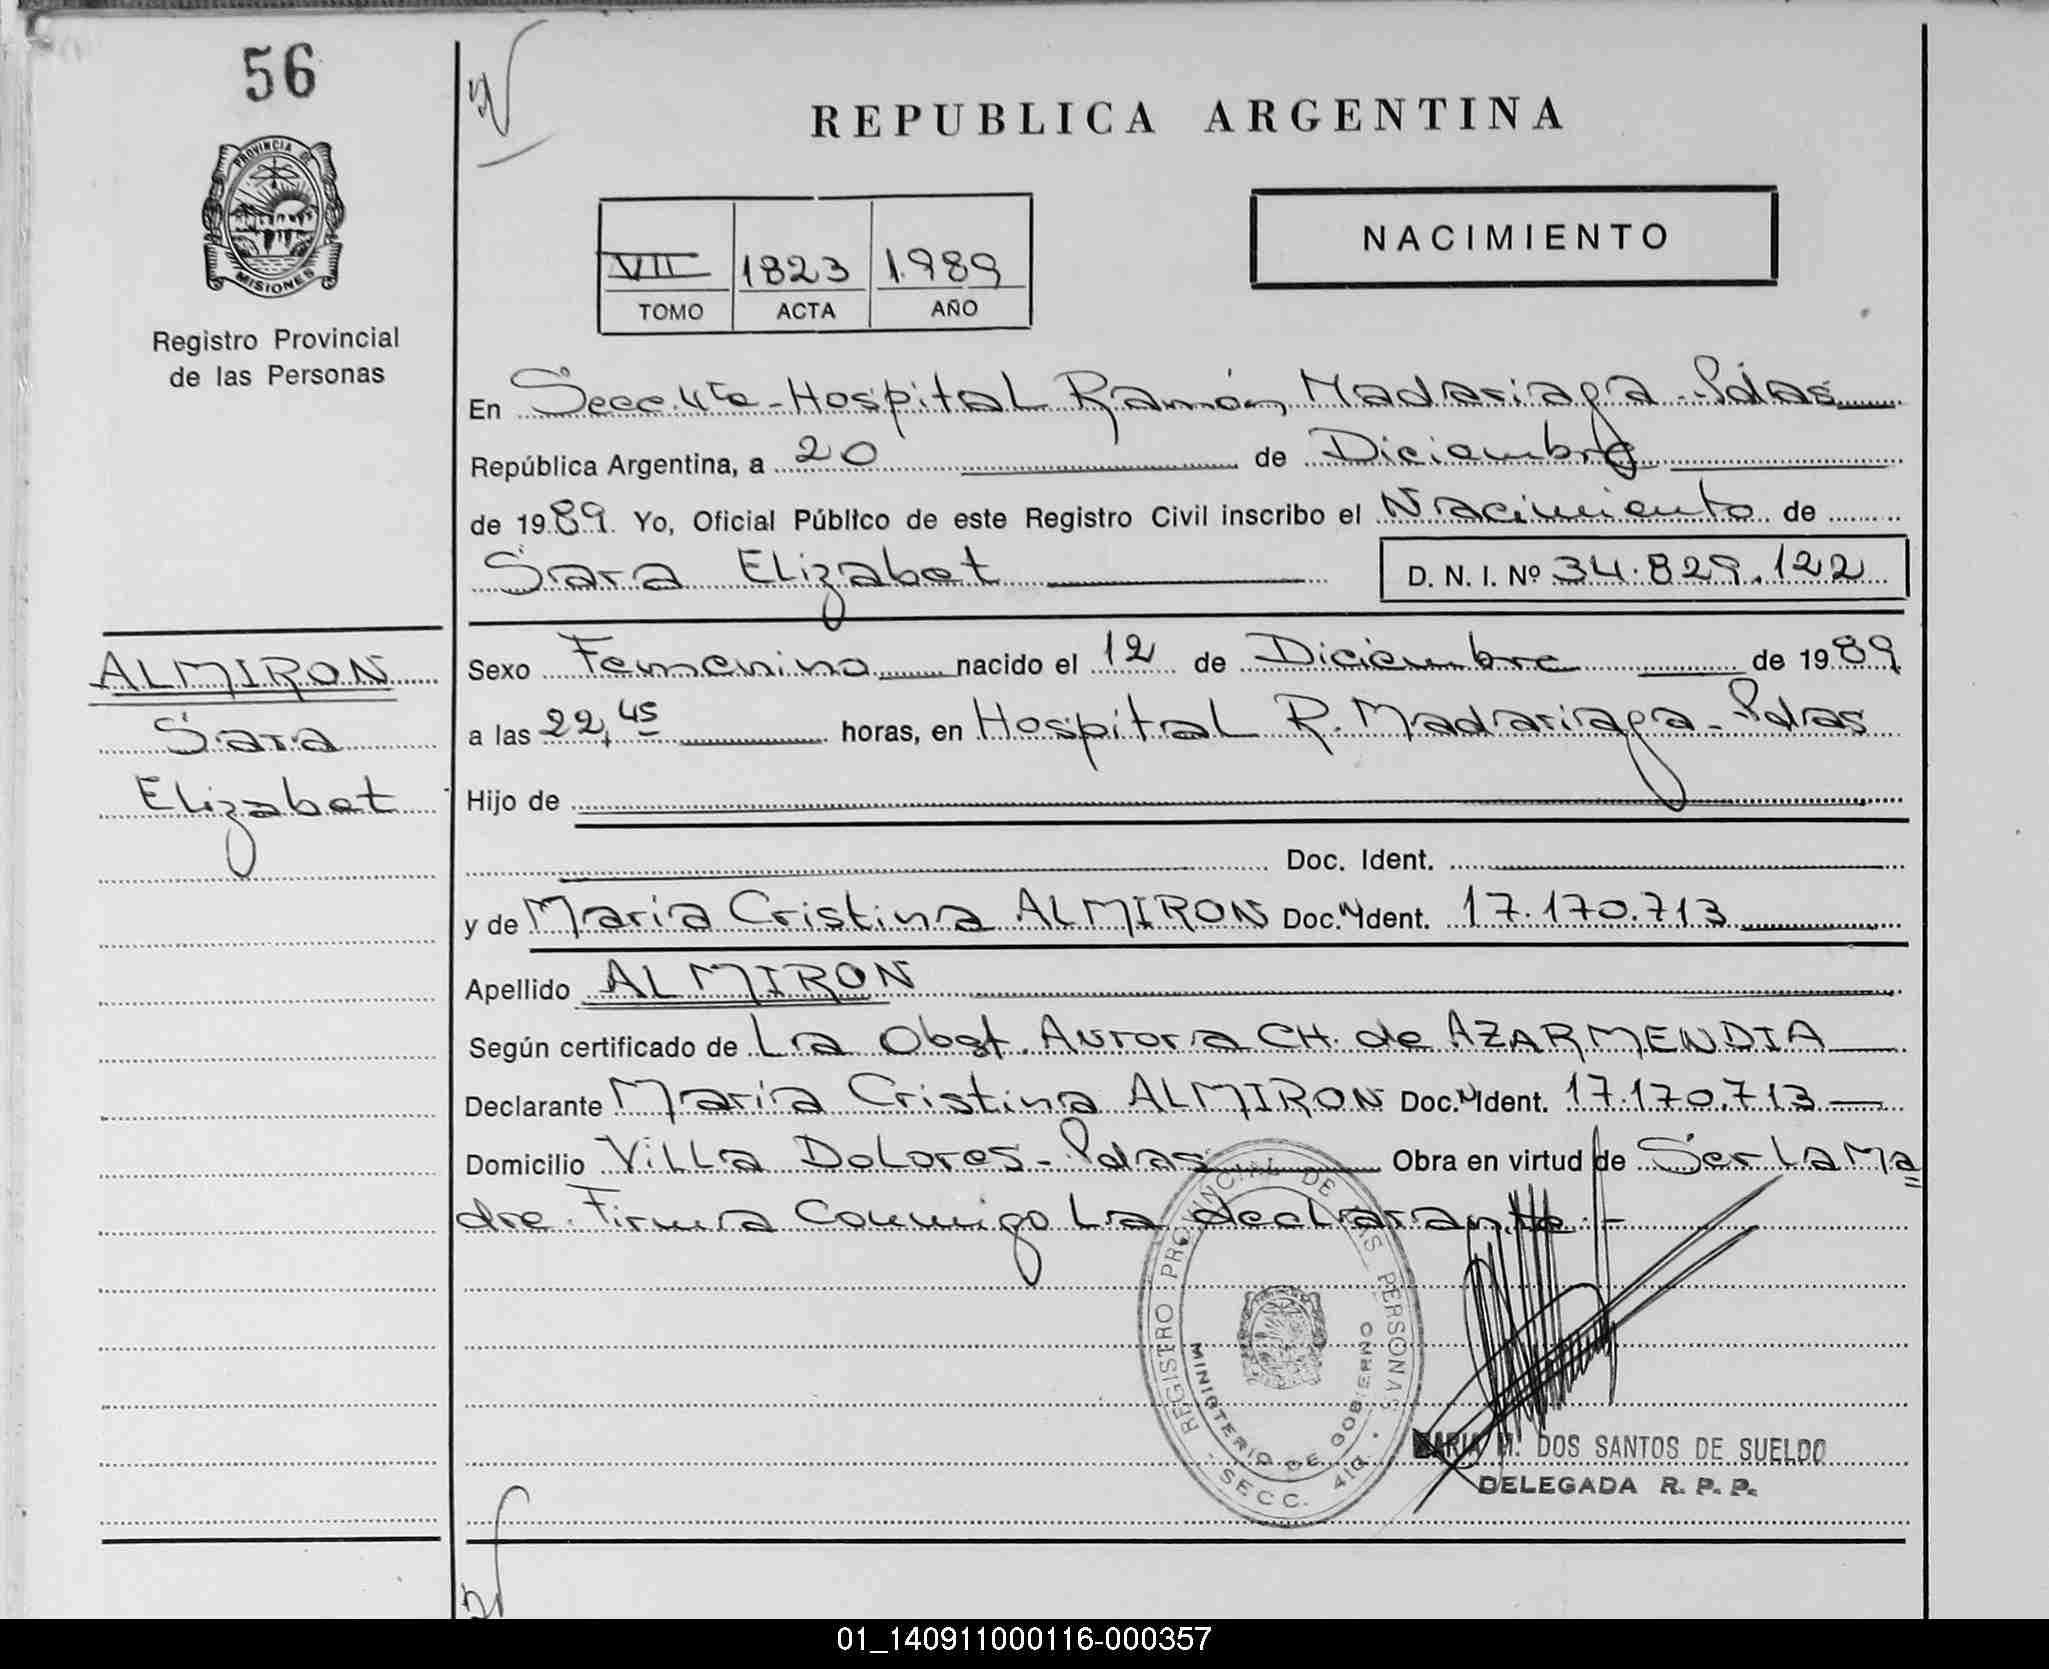 56
PROVINCIA DE
MISIONES
Registro Provincial
de las Personas
REPUBLICA ARGENTINA
VII 1823 1.989
TOMO ACTA AÑO
NACIMIENTO
En Secc. 4ta - Hospital Ramón Madariaga - Pdas
República Argentina, a 20 de Diciembre
de 1989. Yo, Oficial Público de este Registro Civil inscribo el Nacimiento de
Sara Elizabet D. N. I. Nº 34.829.122
ALMIRON
Sara
Elizabet
Sexo Femenino nacido el 12 de Diciembre de 1989
a las 22,45 horas, en Hospital R. Madariaga - Pdas
Hijo de
Doc. Ident.
y de Maria Cristina ALMIRON Doc. N Ident. 17.170.713
Apellido ALMIRON
Según certificado de La Obst. Aurora CH. de AZARMENDIA
Declarante María Cristina ALMIRON Doc. N Ident. 17.170.713
Domicilio Villa Dolores - Pdas Obra en virtud de Ser La Ma
dre. Firma Conmigo La declarante. -
REGISTRO PROVINCIAL DE LAS PERSONAS
MINISTERIO DE GOBIERNO
- SECC. 4ta. -
MARIA M. DOS SANTOS DE SUELDO
DELEGADA R. P. P.
01_140911000116-000357